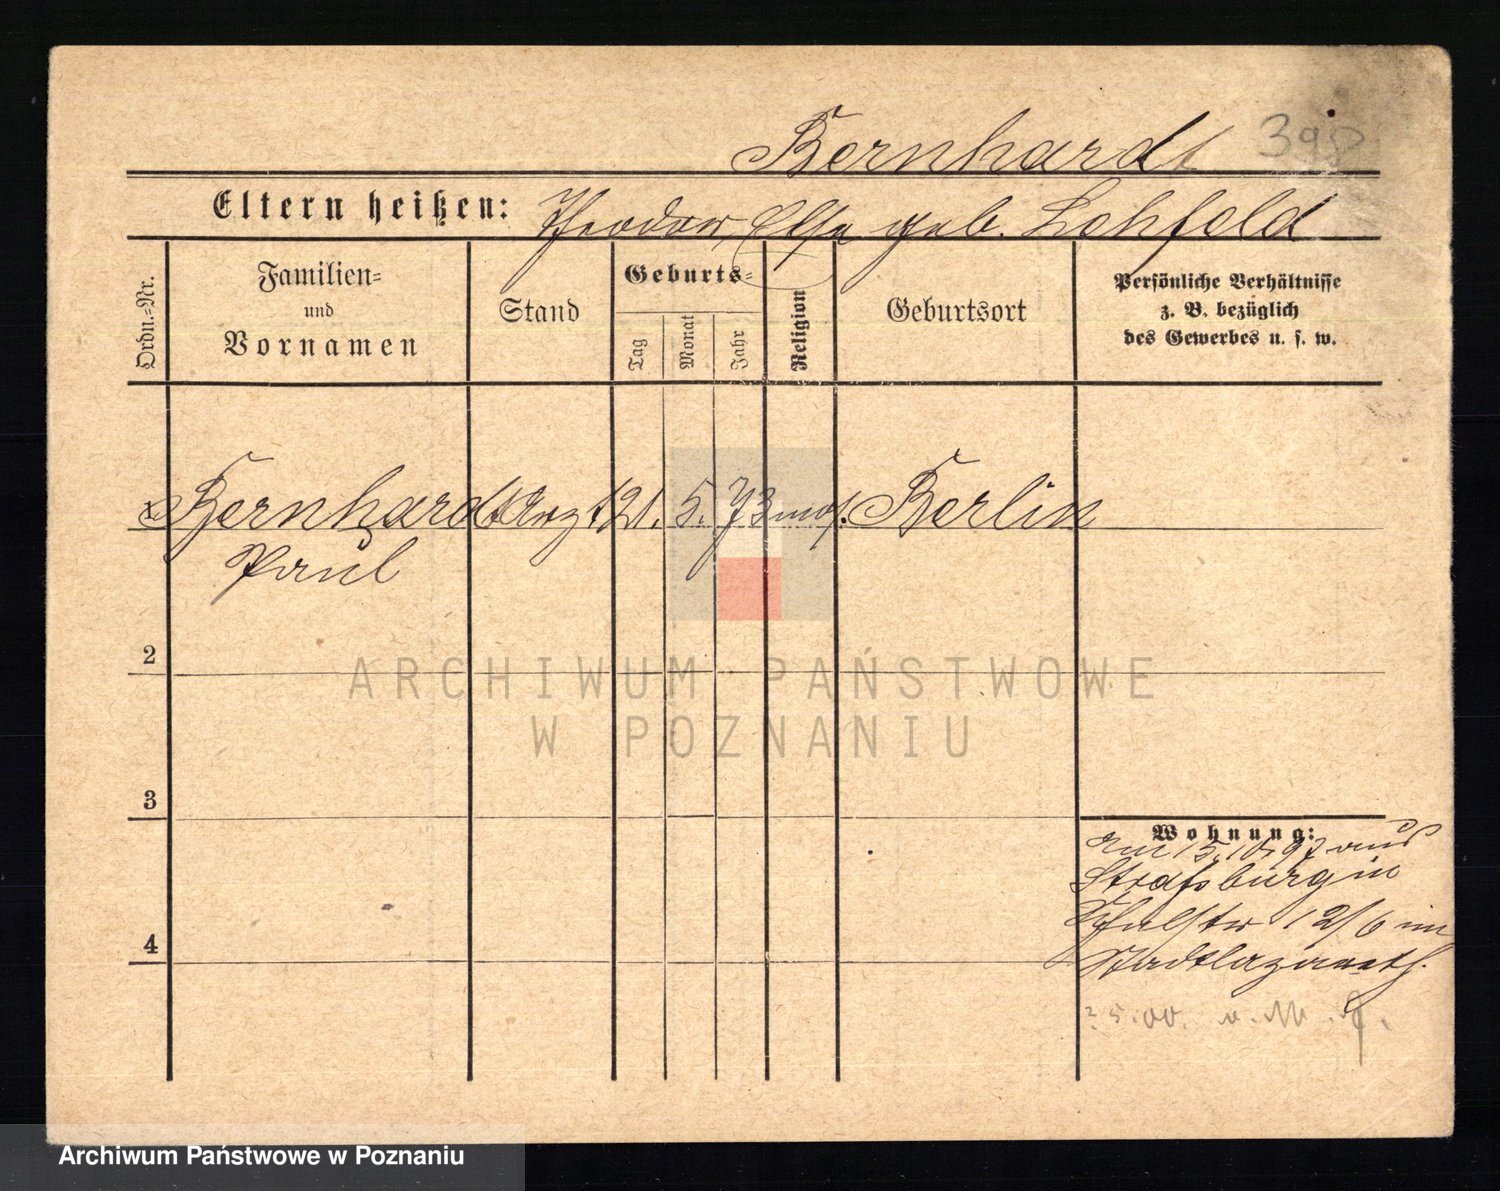 Bernhardt 390
Eltern heißen: Theodor, Else geb. Lehfeld
Ordn.=Nr.
Familien=
und
Vornamen
Stand
Geburts=
Tag
Monat
Jahr
Religion
Geburtsort
Persönliche Verhältnisse
z. B. bezüglich
des Gewerbes u. s. w.
1 Bernhardt Arzt 21. 5. 73 mos. Berlin
Paul
2
ARCHIWUM PAŃSTWOWE
W POZNANIU
3
Wohnung:
am 15.10.97 aus
Straßburg in
12/6 im
Stadtlazareth.
4
Archiwum Państwowe w Poznaniu